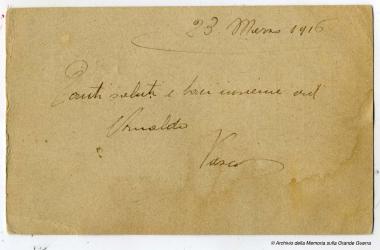 23 Marzo 1916
Tanti saluti e baci insieme ad
Arnaldo
Vasco
© Archivio della Memoria sulla Grande Guerra